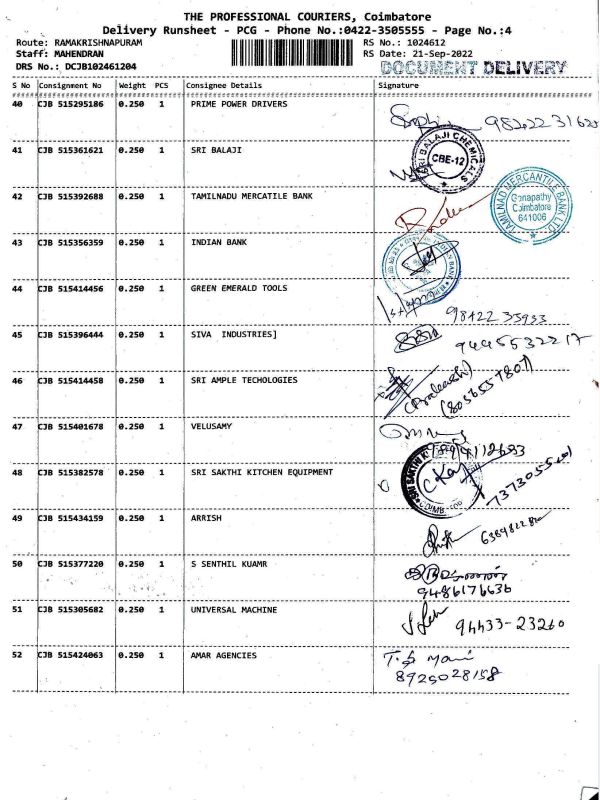 THE PROFESSIONAL COURIERS, Coimbatore
Delivery Runsheet - PCG - Phone No.:0422-3505555 - Page No.:4
Route: RAMAKRISHNAPURAM RS No.: 1024612
Staff: MAHENDRAN RS Date: 21-Sep-2022
DRS No.: DCJB102461204 DOCUMENT DELIVERY
S No Consignment No Weight PCS Consignee Details Signature
40 CJB 515295186 0.250 1 PRIME POWER DRIVERS
41 CJB 515361621 0.250 1 SRI BALAJI
SRI BALAJI CHEMICALS
CBE-12
42 CJB 515392688 0.250 1 TAMILNADU MERCATILE BANK
TAMILNAD MERCANTILE BANK LTD.
Ganapathy
Coimbatore
641006
43 CJB 515356359 0.250 1 INDIAN BANK
INDIAN BANK
44 CJB 515414456 0.250 1 GREEN EMERALD TOOLS
98422 35933
45 CJB 515396444 0.250 1 SIVA INDUSTRIES]
9445532217
46 CJB 515414458 0.250 1 SRI AMPLE TECHOLOGIES
(Prakash)
(8056557807)
47 CJB 515401678 0.250 1 VELUSAMY
48 CJB 515382578 0.250 1 SRI SAKTHI KITCHEN EQUIPMENT
49 CJB 515434159 0.250 1 ARRISH
50 CJB 515377220 0.250 1 S SENTHIL KUAMR
9486176636
51 CJB 515305682 0.250 1 UNIVERSAL MACHINE
94433-23260
52 CJB 515424063 0.250 1 AMAR AGENCIES
T.S Mani
8925028158